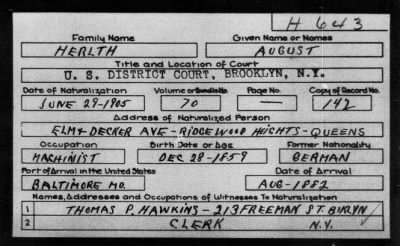 H 643
Family Name Given Name or Names
HERLTH AUGUST
Title and Location of Court
U. S. DISTRICT COURT, BROOKLYN, N.Y.
Date of Naturalization Volume or Bundle No. Page No. Copy of Record No.
JUNE 29-1905 70 — 142
Address of Naturalized Person
ELM & DECKER AVE-RIDGEWOOD HEIGHTS-QUEENS
Occupation Birth Date or Age Former Nationality
MACHINIST DEC 28-1859 GERMAN
Port of Arrival in the United States Date of Arrival
BALTIMORE MD. AUG-1882
Names, Addresses and Occupations of Witnesses To Naturalization
1 THOMAS P. HAWKINS-213 FREEMAN ST. BKLYN
2 CLERK N.Y.